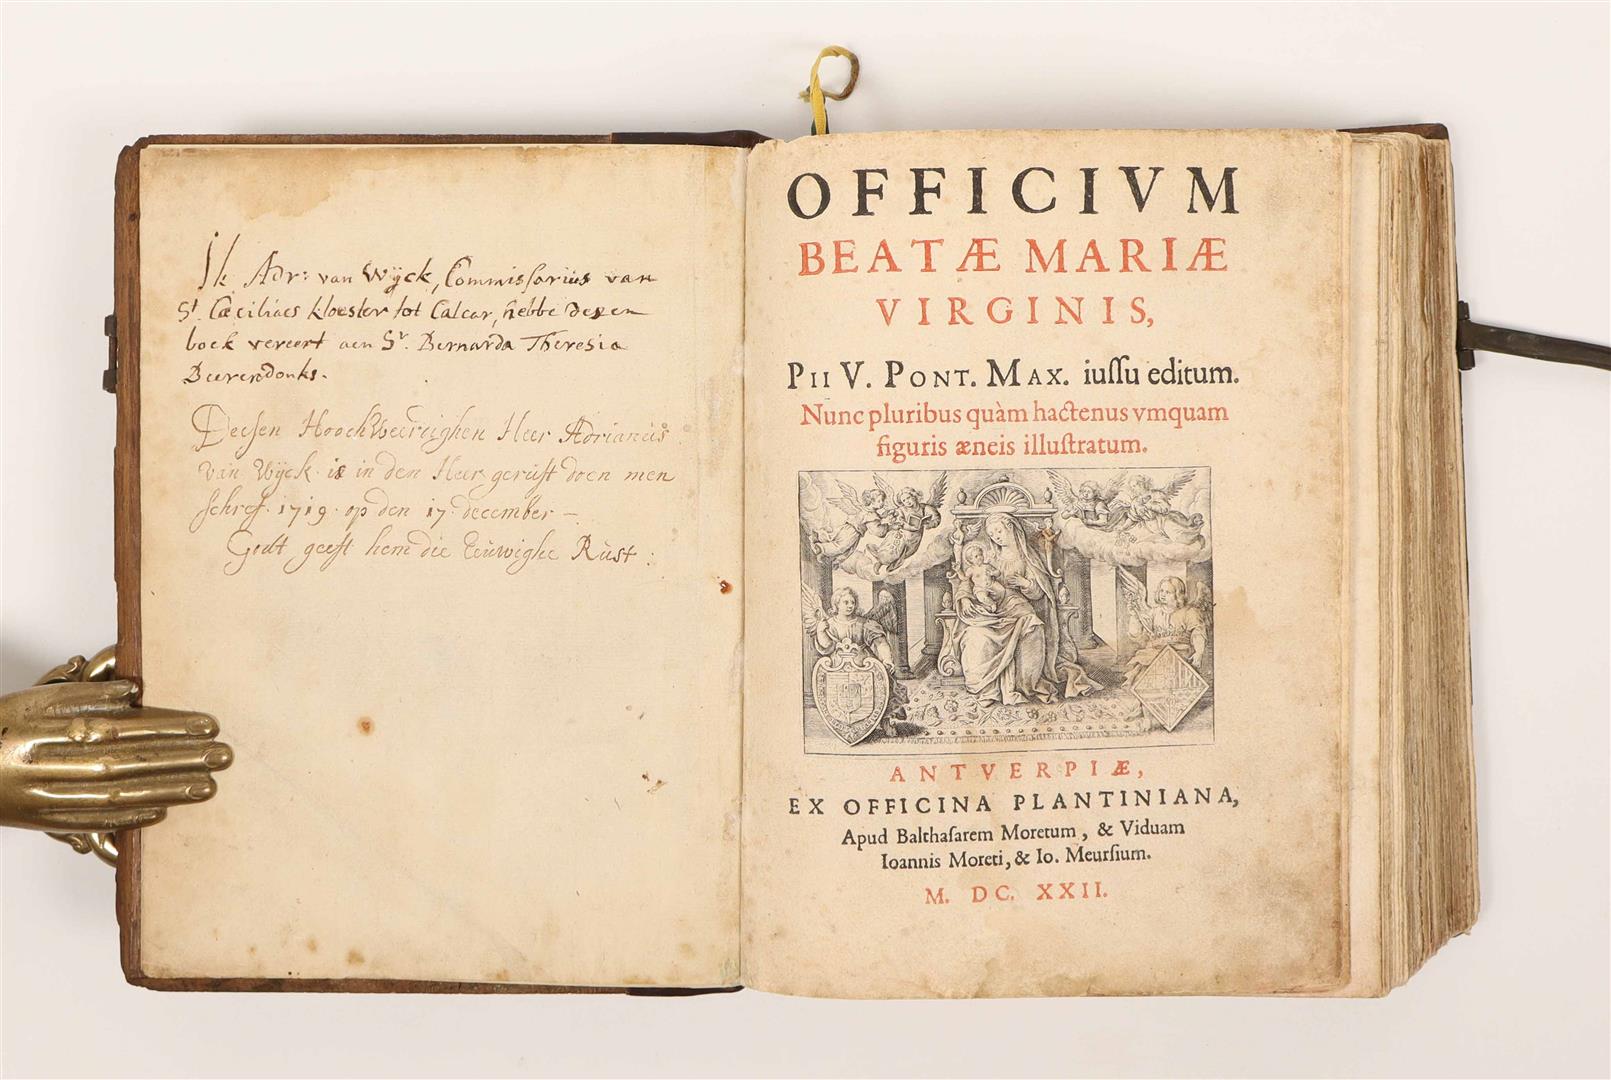 Ik Adr: van Wijck, Commissarius van
St. Cæciliaes kloester tot Calcar, hebbe desen
boek vereert aen Sr. Bernarda Theresia
Beerendonks.
Deesen HoochWeerdighen Heer Adrianus
van Wijck is in den Heer gerust doen men
schref 1719 op den 17 december —
Godt geeft hem die Eeuwighe Rust:
OFFICIVM
BEATÆ MARIÆ
VIRGINIS,
PII V. PONT. MAX. iuſſu editum.
Nunc pluribus quàm hactenus vmquam
figuris æneis illuſtratum.
ANTVERPIÆ,
EX OFFICINA PLANTINIANA,
Apud Balthaſarem Moretum, & Viduam
Ioannis Moreti, & Io. Meurſium.
M. DC. XXII.